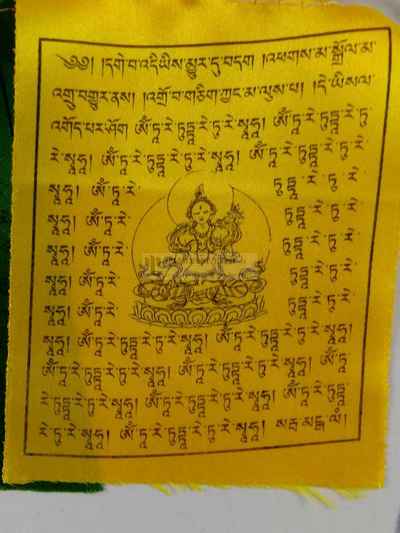 ༄༅། །དགེ་བ་འདི་ཡིས་མྱུར་དུ་བདག །འཕགས་མ་སྒྲོལ་མ་
འགྲུབ་གྱུར་ནས། །འགྲོ་བ་གཅིག་ཀྱང་མ་ལུས་པ། །དེ་ཡི་ས་ལ་
འགོད་པར་ཤོག ཨོཾ་ཏཱ་རེ་ཏུཏྟཱ་རེ་ཏུ་རེ་སྭཱཧཱ། ཨོཾ་ཏཱ་རེ་ཏུཏྟཱ་རེ་ཏུ་
རེ་སྭཱཧཱ། ཨོཾ་ཏཱ་རེ་ཏུཏྟཱ་རེ་ཏུ་རེ་སྭཱཧཱ། ཨོཾ་ཏཱ་རེ་ཏུཏྟཱ་རེ་ཏུ་རེ་
སྭཱཧཱ། ཨོཾ་ཏཱ་རེ་ ཏུཏྟཱ་རེ་ཏུ་རེ་
སྭཱཧཱ། ཨོཾ་ཏཱ་རེ་ ཏུཏྟཱ་རེ་ཏུ་རེ་
སྭཱཧཱ། ཨོཾ་ཏཱ་རེ་ ཏུཏྟཱ་རེ་ཏུ་རེ་
སྭཱཧཱ། ཨོཾ་ཏཱ་རེ་ ཏུཏྟཱ་རེ་ཏུ་རེ་
སྭཱཧཱ། ཨོཾ་ཏཱ་རེ་ ཏུཏྟཱ་རེ་ཏུ་རེ་
སྭཱཧཱ། ཨོཾ་ཏཱ་རེ་ཏུཏྟཱ་རེ་ཏུ་རེ་སྭཱཧཱ། ཨོཾ་ཏཱ་རེ་ཏུཏྟཱ་རེ་ཏུ་རེ་སྭཱཧཱ།
ཨོཾ་ཏཱ་རེ་ཏུཏྟཱ་རེ་ཏུ་རེ་སྭཱཧཱ། ཨོཾ་ཏཱ་རེ་ཏུཏྟཱ་རེ་ཏུ་རེ་སྭཱཧཱ། ཨོཾ་ཏཱ་
རེ་ཏུཏྟཱ་རེ་ཏུ་རེ་སྭཱཧཱ། ཨོཾ་ཏཱ་རེ་ཏུཏྟཱ་རེ་ཏུ་རེ་སྭཱཧཱ། ཨོཾ་ཏཱ་རེ་ཏུཏྟཱ་
རེ་ཏུ་རེ་སྭཱཧཱ། ཨོཾ་ཏཱ་རེ་ཏུཏྟཱ་རེ་ཏུ་རེ་སྭཱཧཱ། སརྦ་མངྒ་ལཾ།